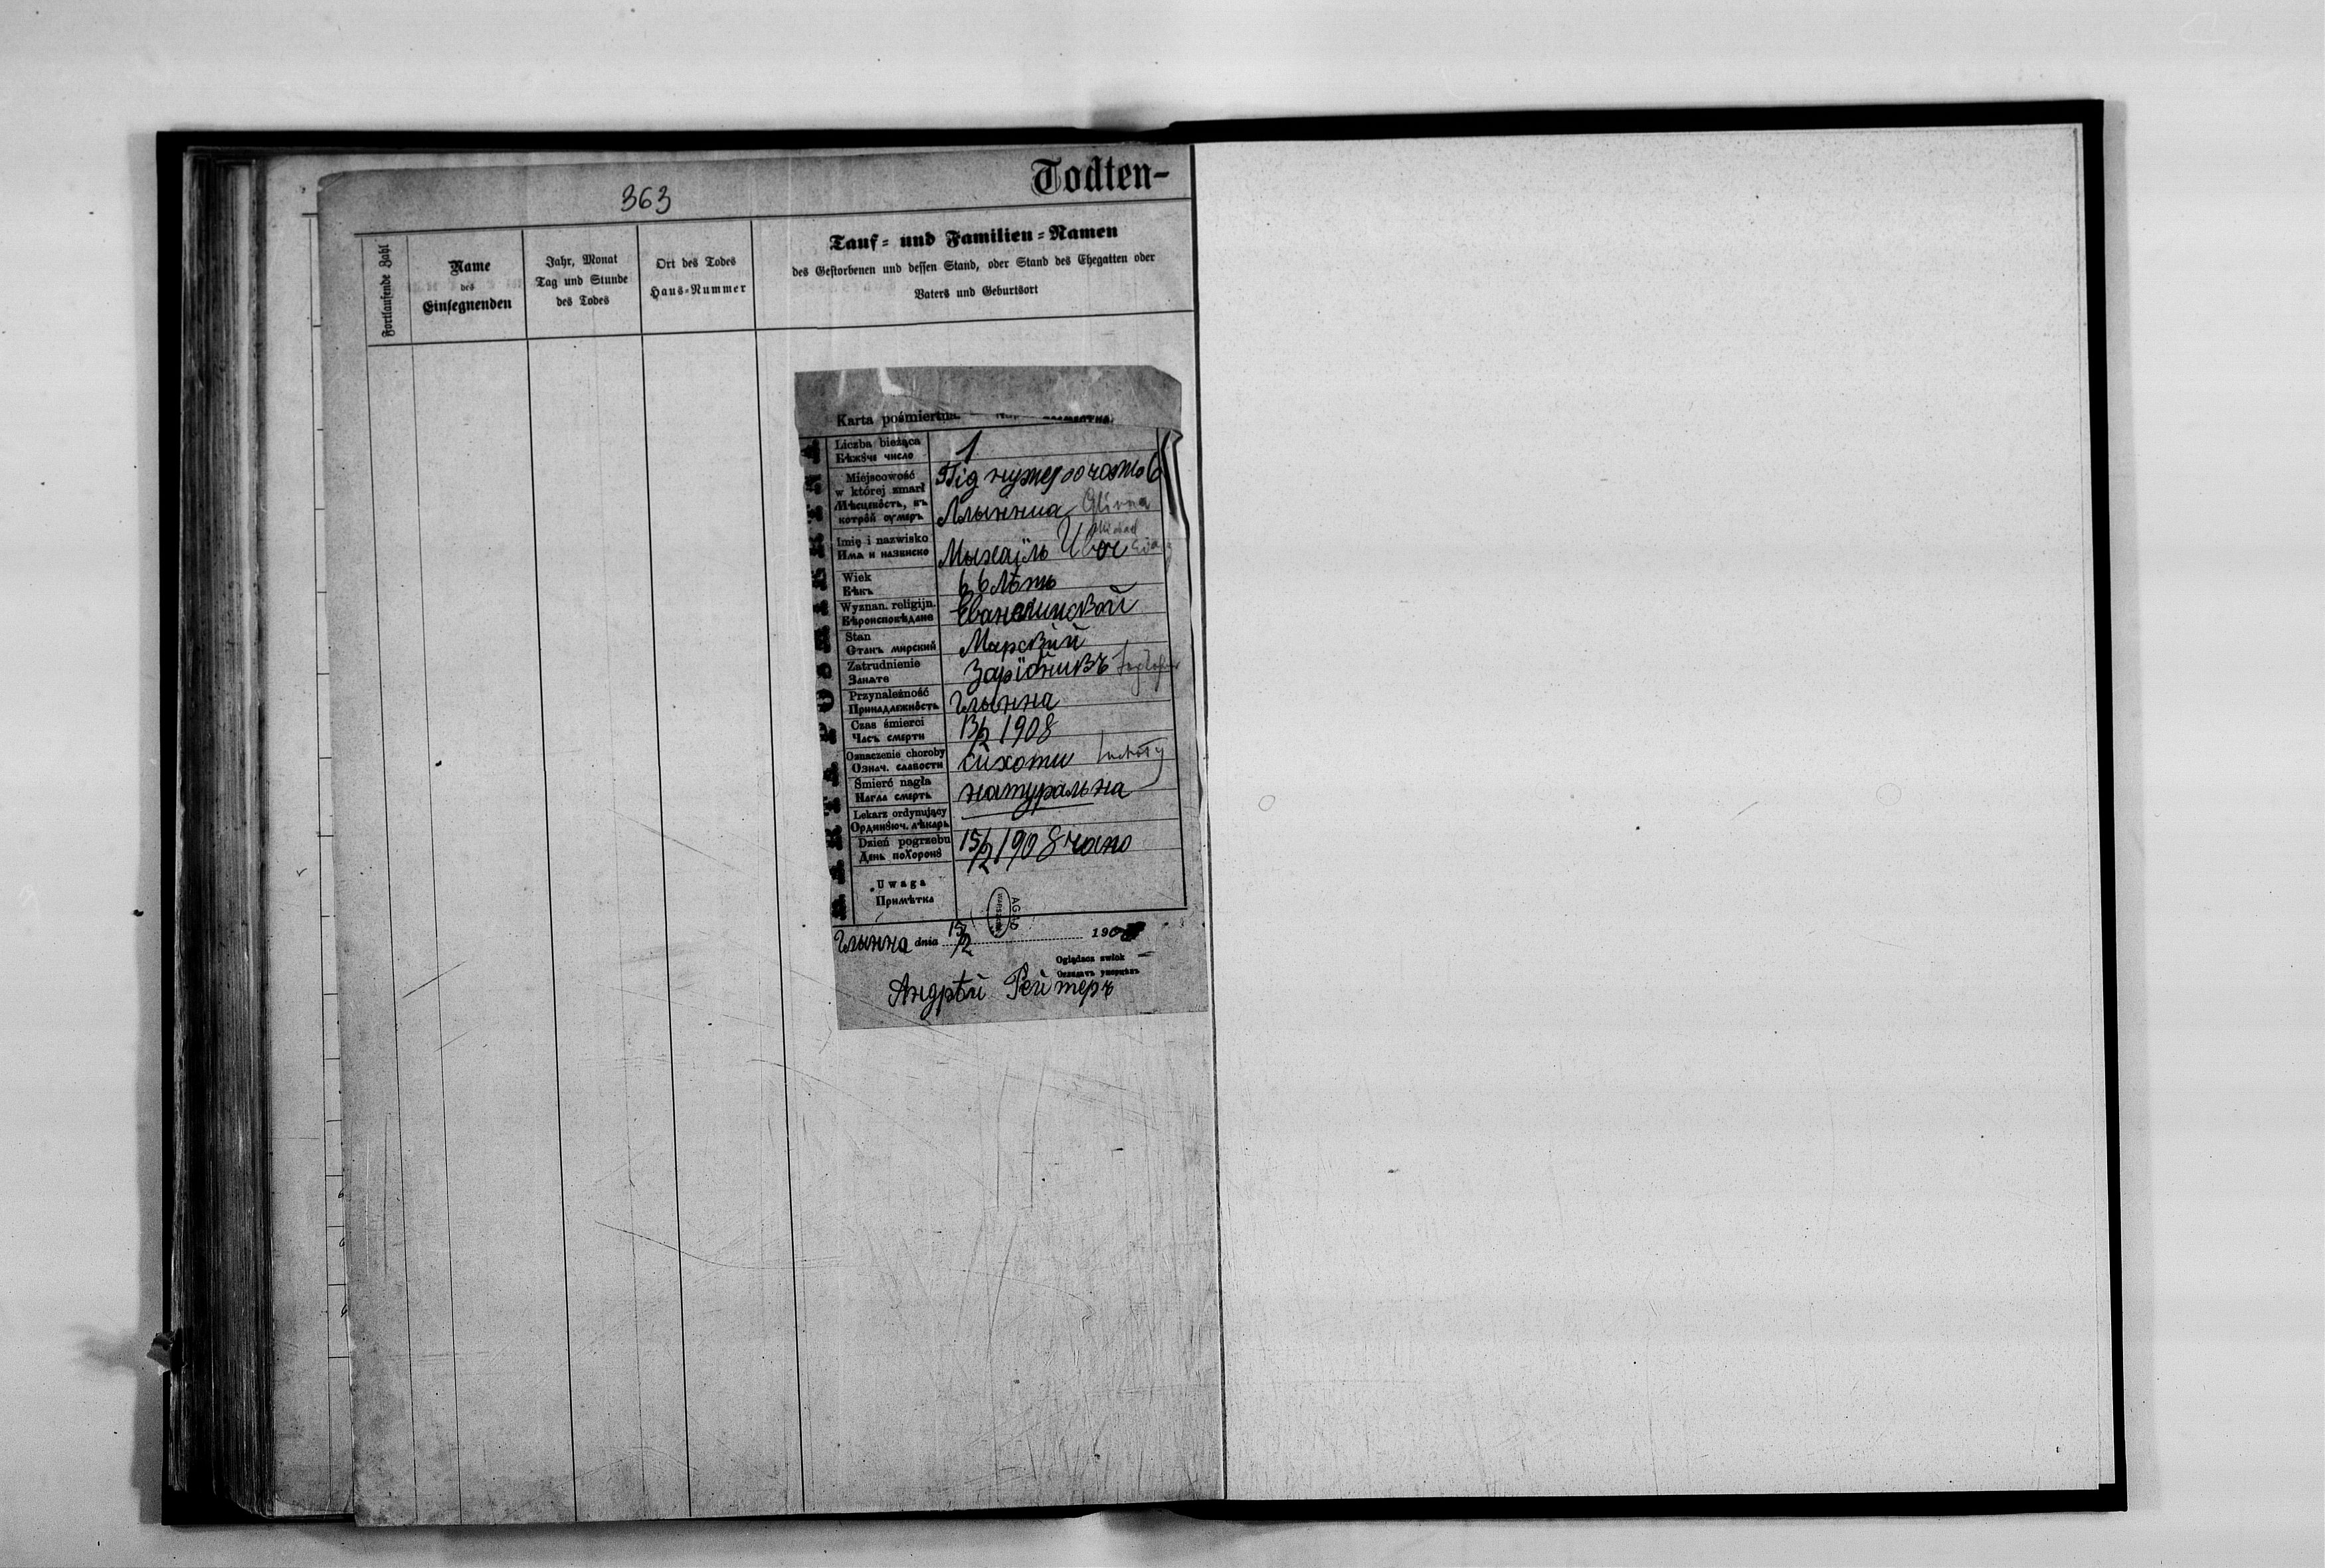 Todten-
363
Fortlaufende Zahl
Name
des
Einsegnenden
Jahr, Monat
Tag und Stunde
des Todes
Ort des Todes
Haus-Nummer
Tauf- und Familien-Namen
des Gestorbenen und dessen Stand, oder Stand des Ehegatten oder
Vaters und Geburtsort
Karta pośmiertna.
Liczba bieżąca
Бѣжуче число
1
Miejscowość
w której zmarł
Мѣсцевость, въ
котрôй оумеръ
Під
Glinna
Imię i nazwisko
Има и назвиско
Михаїль
Wiek
Вѣкъ
66 лѣть
Wyznan. religijn.
Вѣроисповѣдане
Stan
Станъ мирский
Zatrudnienie
Занате
Зарібникъ
Przynależność
Принадлежнôсть
Глинна
Czas śmierci
Часъ смерти
13/2 1908
Oznaczenie choroby
Означ. слабости
сухоти
suchoty
Śmierć nagła
Нагла смерть
натуральна
Lekarz ordynujący
Ординуюч. лѣкарь
Dzień pogrzebu
День похорону
15/2 1908 рано
Uwaga
Примѣтка
AGAD
WARSZAWA
Глинна dnia 15/2 190
Oglądacz zwłok
Андрѣй Рейтеръ